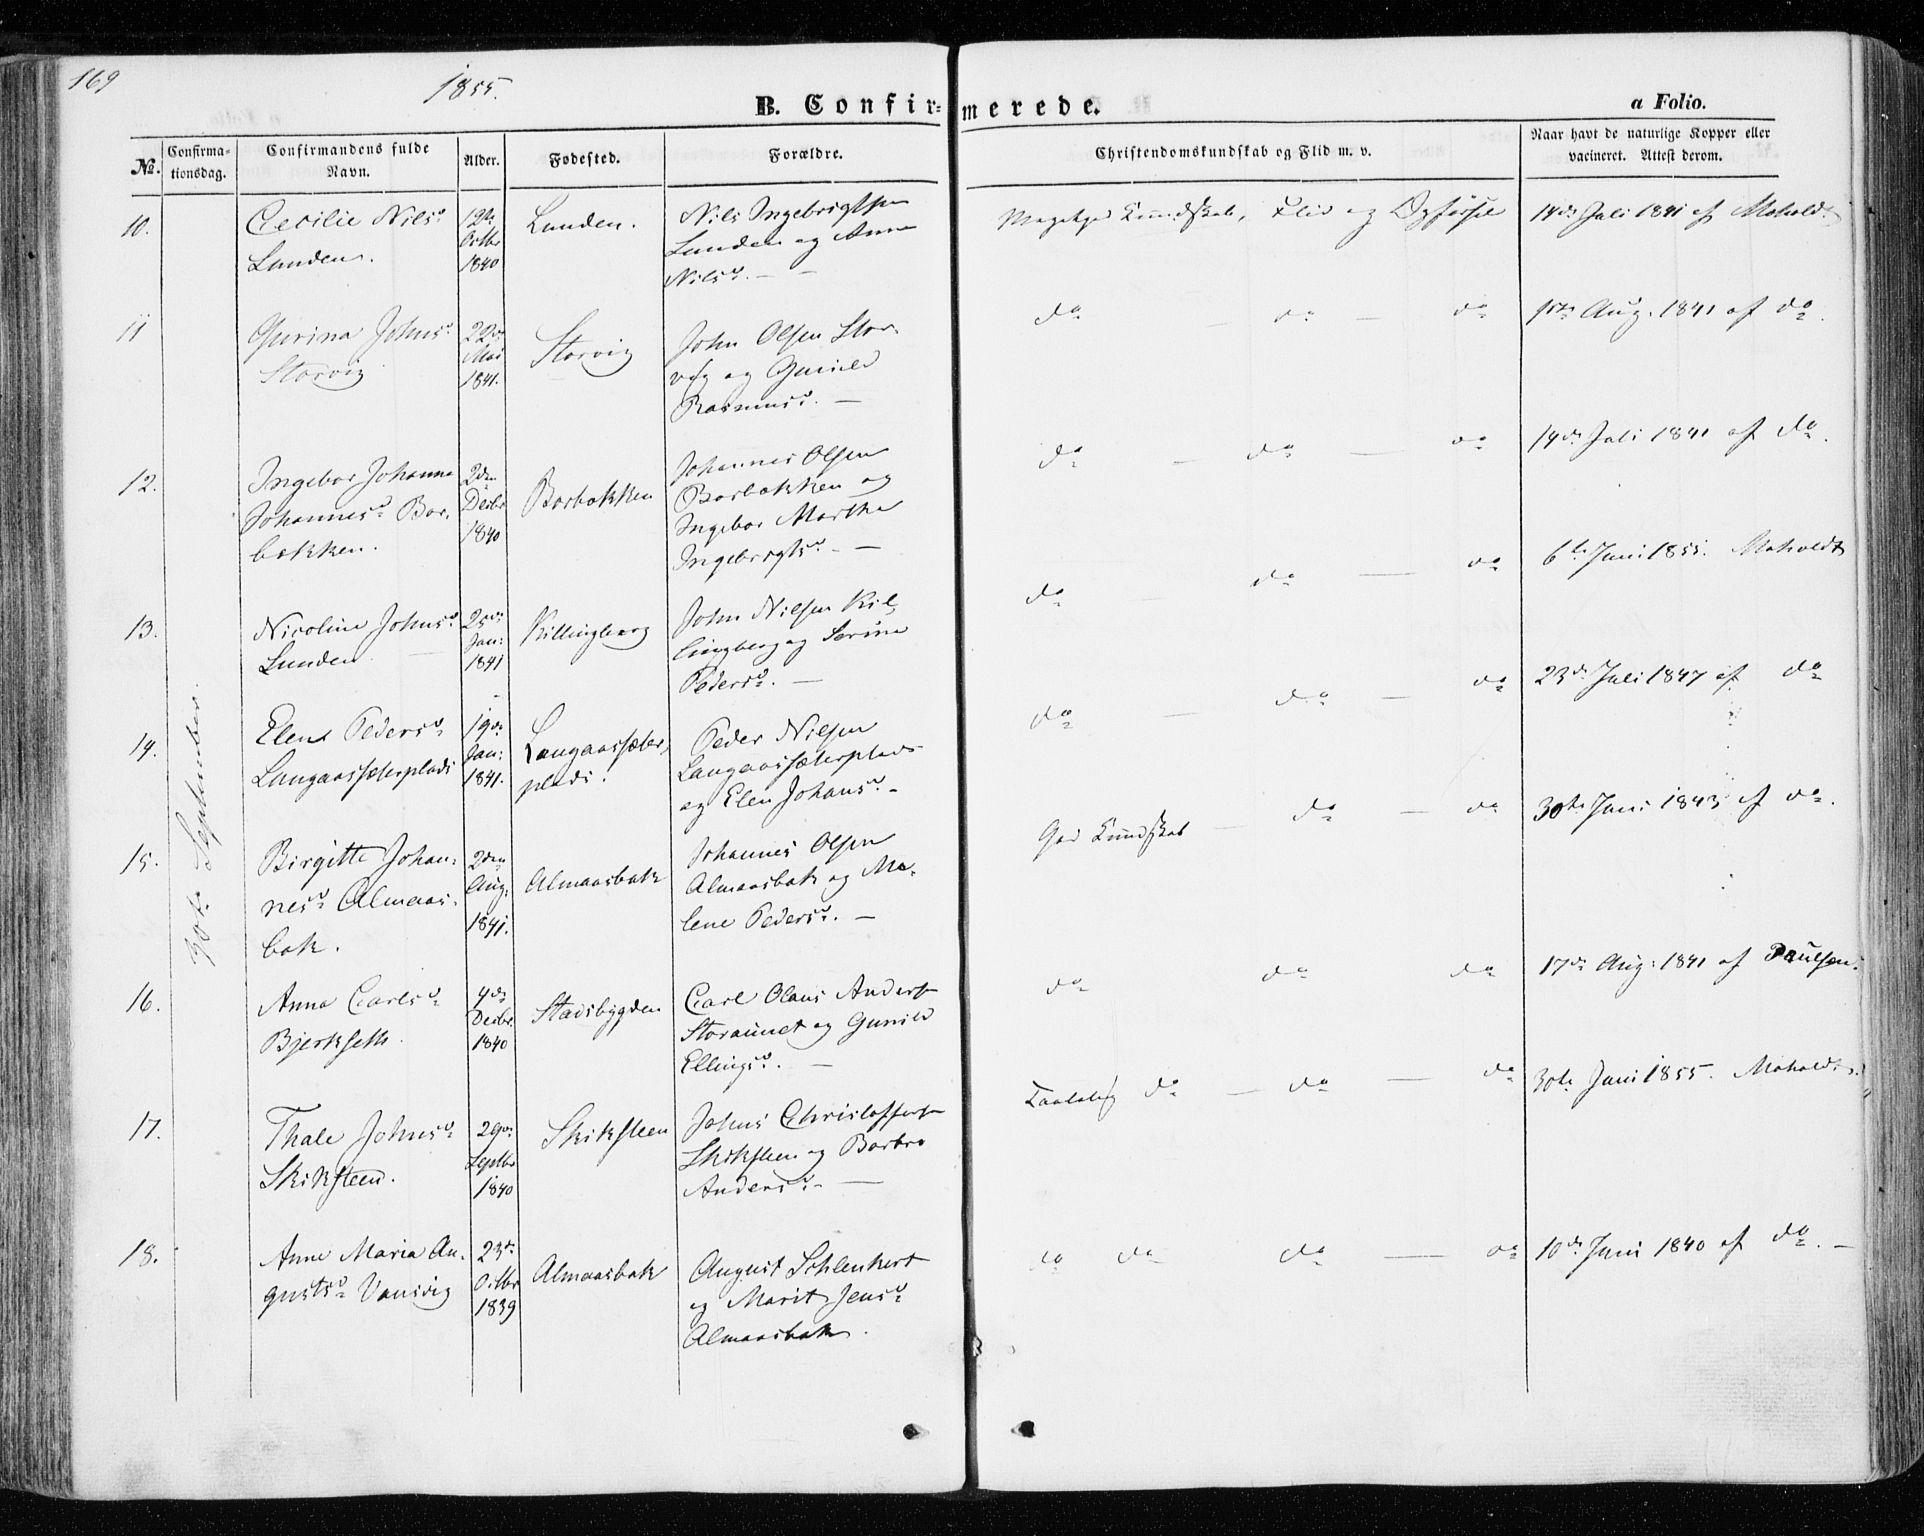 169
1855.
B. Confir-
merede.
a Folio.
No.
Confirma-
tionsdag.
Confirmandens fulde
Navn.
Alder.
Fødested.
Forældre.
Christendomskundskab og Flid m. v.
Naar havt de naturlige Kopper eller
vacineret. Attest derom.
30te September.
10.
Cecilie Nilsd.
Lunden.
12te
Octbr
1840
Lunden.
Nils Ingebrigtsen
Lunden og Anne
Nilsd. —
Meget god Kundskab, Flid og Opførsel
14de Juli 1841 af Moholdt
11
Gurina Johnsd.
Storvig
22de
Mai
1841.
Storvig
John Olsen Stor-
vig og Gunild
Rasmusd. —
do — do — do
1ste Aug. 1841 af do.
12.
Ingebor Johanna
Johannesd. Bor-
bakken.
2den
Decbr
1840
Borbakken
Johannes Olsen
Borbakken og
Ingebor Martha
Ingebrigtsd. —
do — do — do
14de Juli 1841 af do.
13.
Nicoline Johnsd.
Lunden
25de
Jan:
1841
Killingberg
John Nilsen Kil-
lingberg og Serine
Pedersd. —
do — do — do
6te Juni 1855. Moholdt
14.
Elen Pedersd.
Langaassæterplads
19de
Jan:
1841.
Langaassæter-
plads.
Peder Nilsen
Langaassæterplads
og Elen Johansd. -
do — do — do
23de Juli 1847 af do
15.
Birgitte Johan-
nesd. Almaas-
bak.
2den
Aug:
1841.
Almaasbak
Johannes Olsen
Almaasbak og Ma-
lene Pedersd. —
God Kundskab — do — do
30te Juni 1843 af do.
16.
Anna Carlsd.
Bjerkseth
4de
Decbr.
1840
Stadsbygden
Carl Olaus Anders
Storaunet og Gunild
Ellingsd. —
do do do
17de Aug: 1841 af Paulsen.
17.
Thale Johnsd.
Skiksteen.
29de
Septbr
1840
Skiksteen
Johns Christoffers
Skiksteen og Barbro
Andersd. —
Taalelig do — do — do
30te Juni 1855. Moholdt
18.
Anne Maria Au-
gustsd. Vansvig
23de
Octbr
1839
Almaasbak
August Schlenkert
og Marit Jensd.
Almaasbak.
do do do — do
10de Juni 1840 af do. —